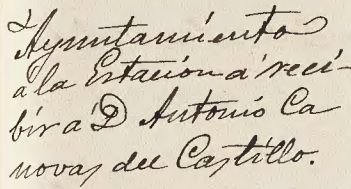 Ayuntamiento
a la Estación a reci-
bir a D Antonio Ca
novas del Castillo.